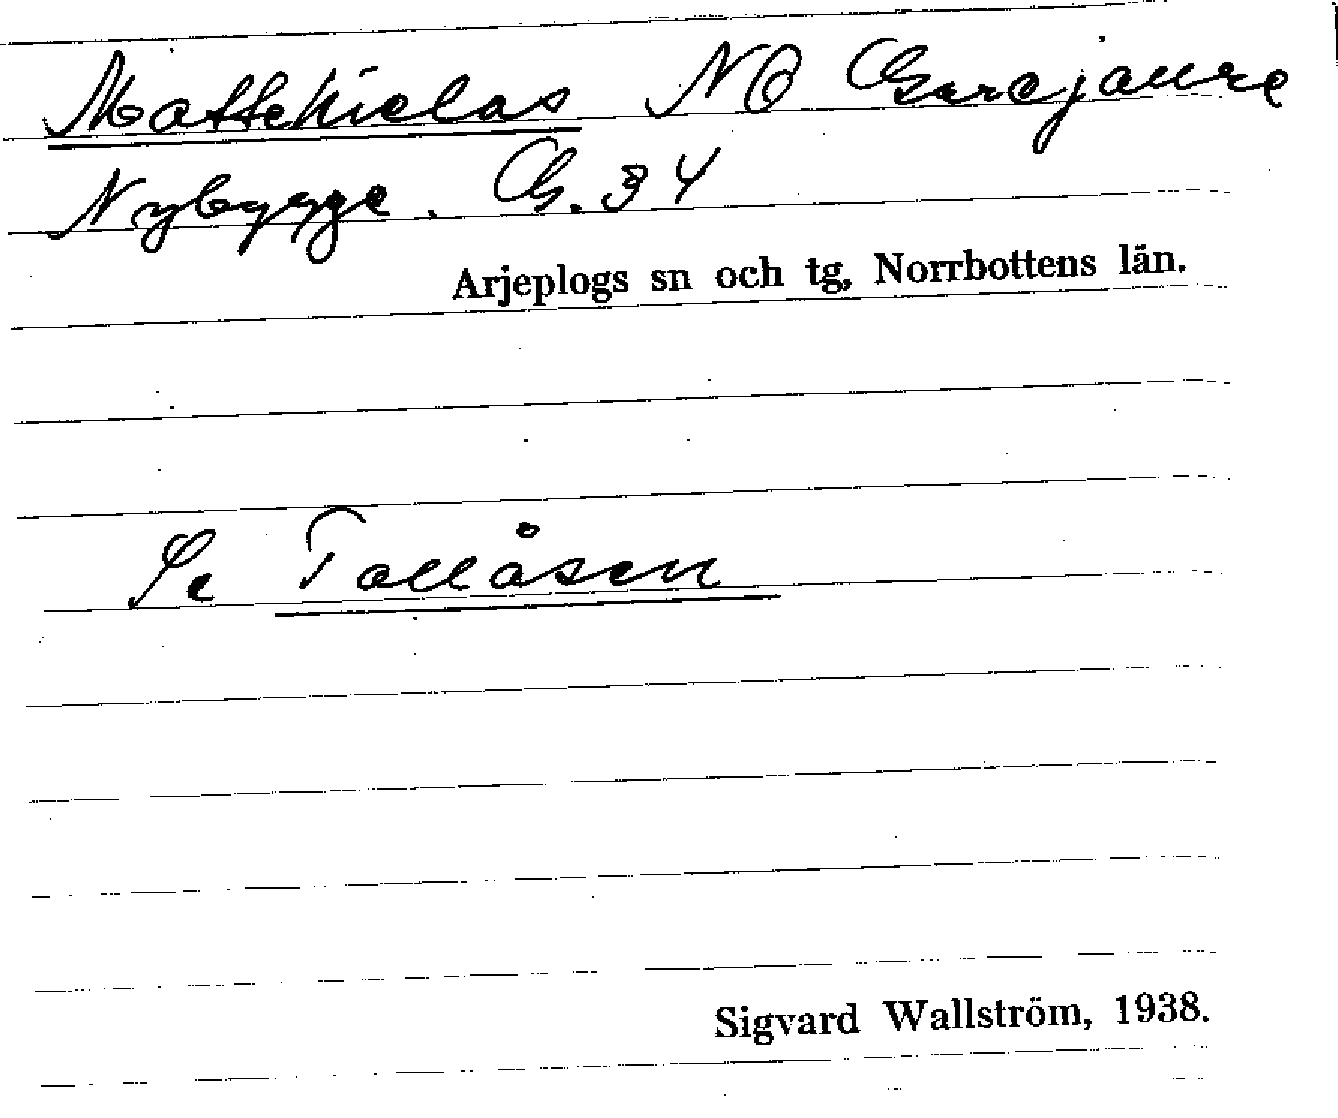 Mattehielas NO Garajaure
Nybygge. G. 34
Arjeplogs sn och tg, Norrbottens län.
Se Tallåsen
Sigvard Wallström, 1938.